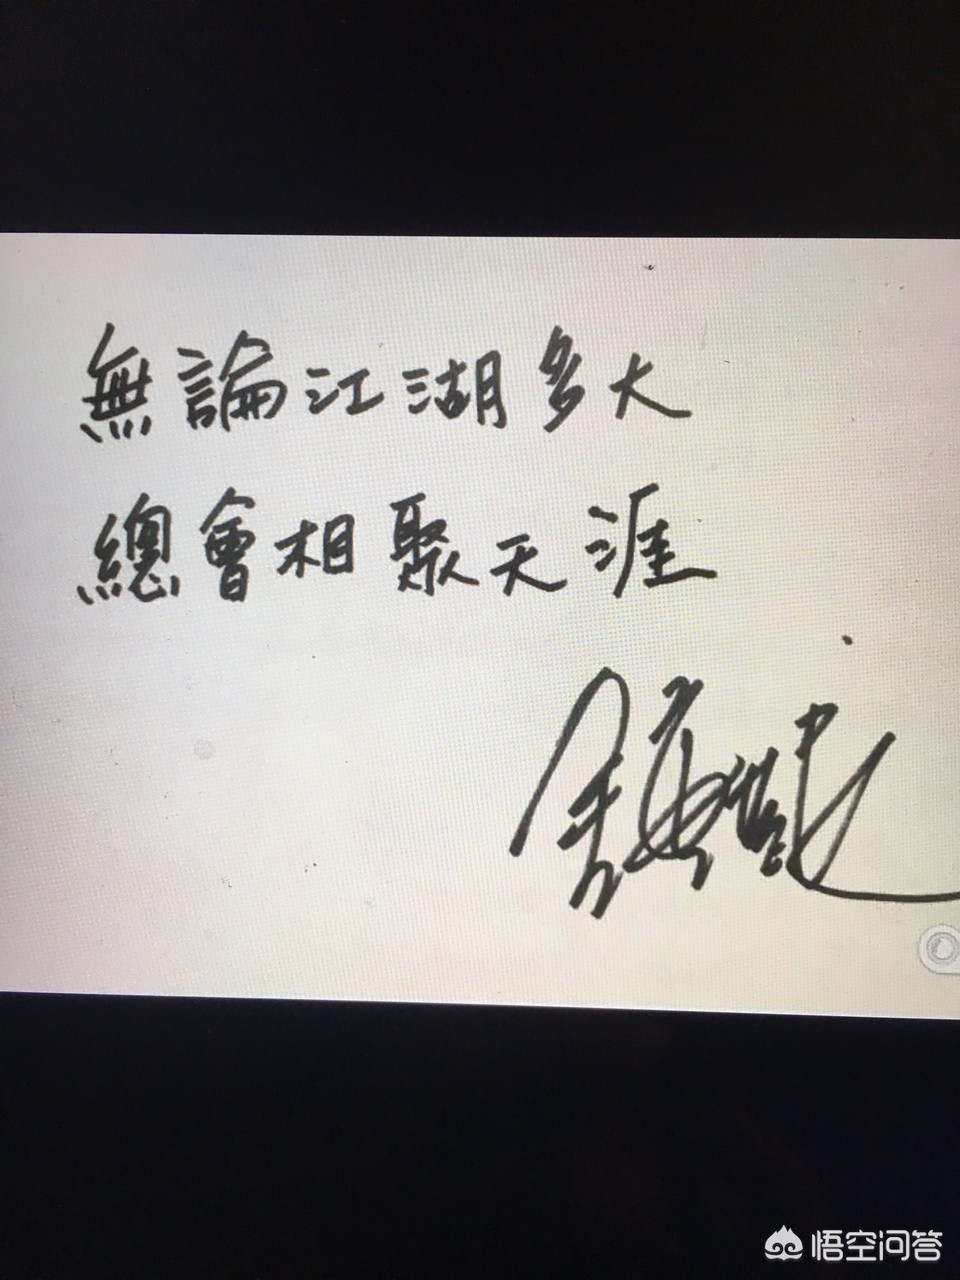 無論江湖多大
總會相聚天涯
悟空问答